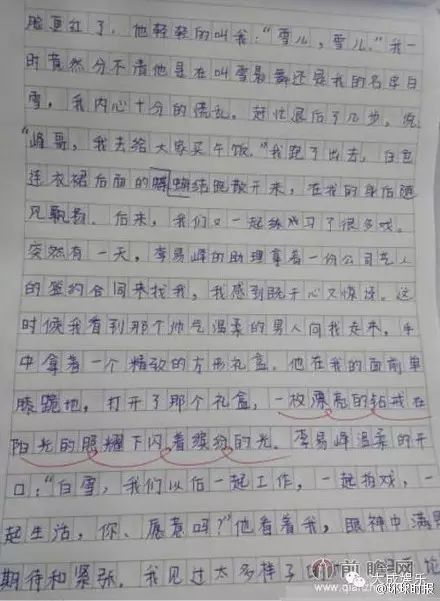 脸更红了，他轻轻的叫我："雪儿，雪儿。"我一
时竟然分不清他是在叫雪暴舞还是我的名字白
雪，我内心十分的慌乱。赶忙退后了几步，说
"峰哥，我去给大家买午饭。"我跑了出去，白色
连衣裙后面的蝴蝶结跑散开来，在我的身后随
风飘扬。后来，我们又一起练习了很多戏。
突然有一天，李易峰的助理拿着一份公司艺人
的签约合同来找我，我感到既开心又惊讶。这
时候我看到那个帅气温柔的男人向我走来，手
中拿着一个精致的方形礼盒，他在我的面前单
膝跪地，打开了那个礼盒，一枚漂亮的钻戒在
阳光的照耀下闪着缤纷的光。李易峰温柔的开
口："白雪，我们以后一起工作，一起拍戏，一
起生活，你、愿意吗？"他看着我，眼神中满是
期待和紧张。我见过太多样子
前瞻网
大成娱乐
@环球时报